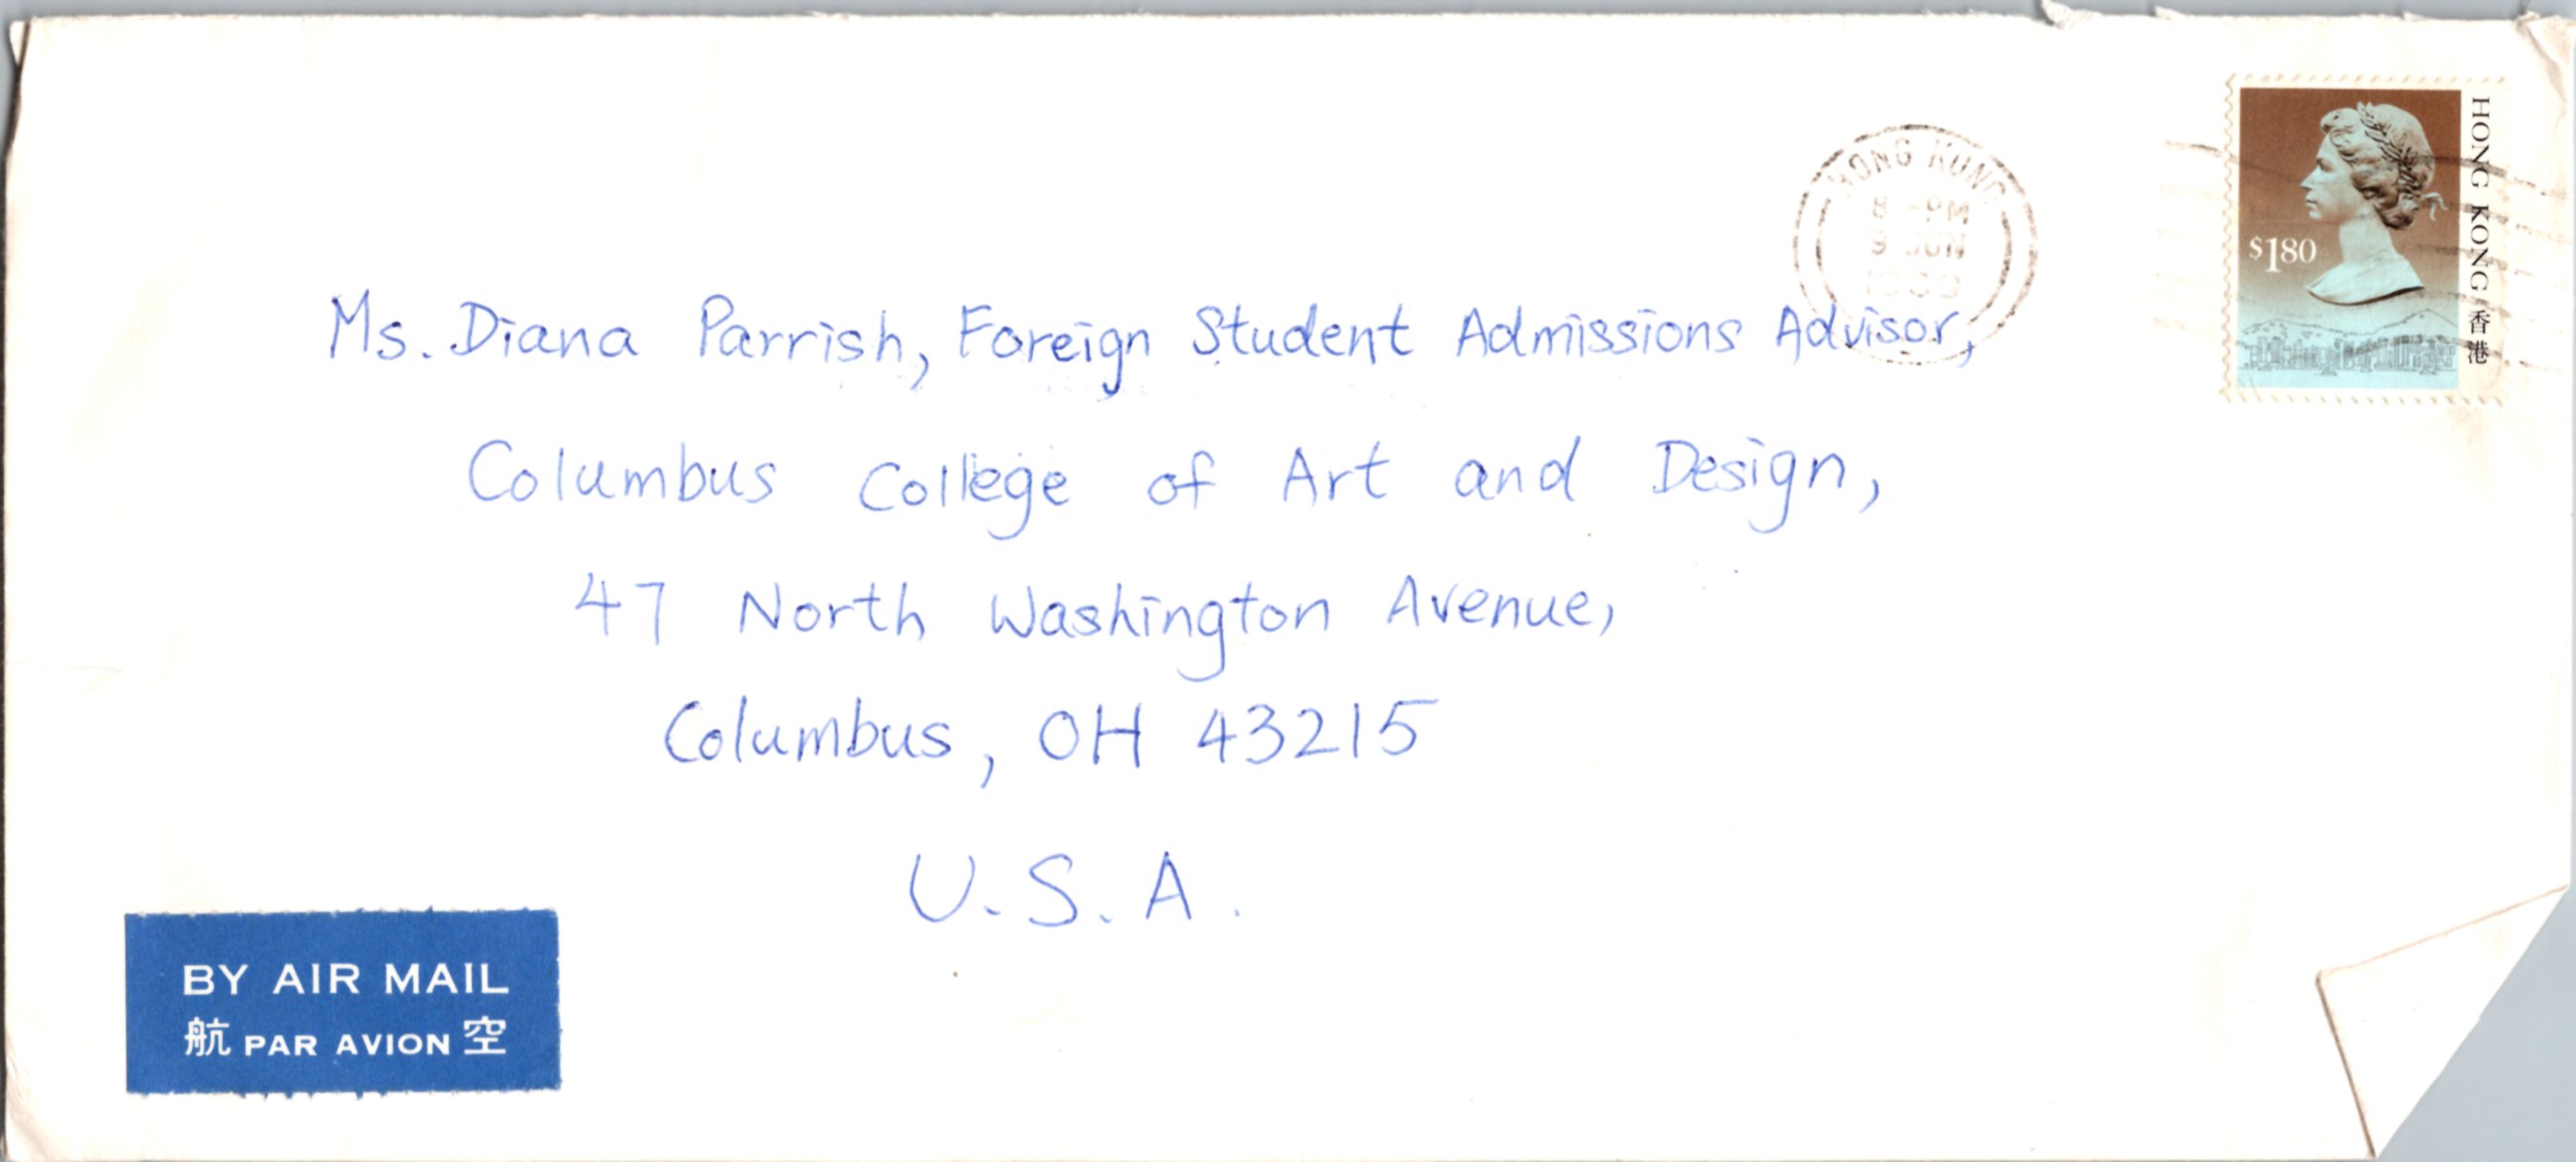 HONG KONG
8 -PM
9 JUN
$180
HONG KONG 香港
Ms. Diana Parrish, Foreign Student Admissions Advisor,
Columbus College of Art and Design,
47 North Washington Avenue,
Columbus, OH 43215
U.S.A.
BY AIR MAIL
航 PAR AVION 空